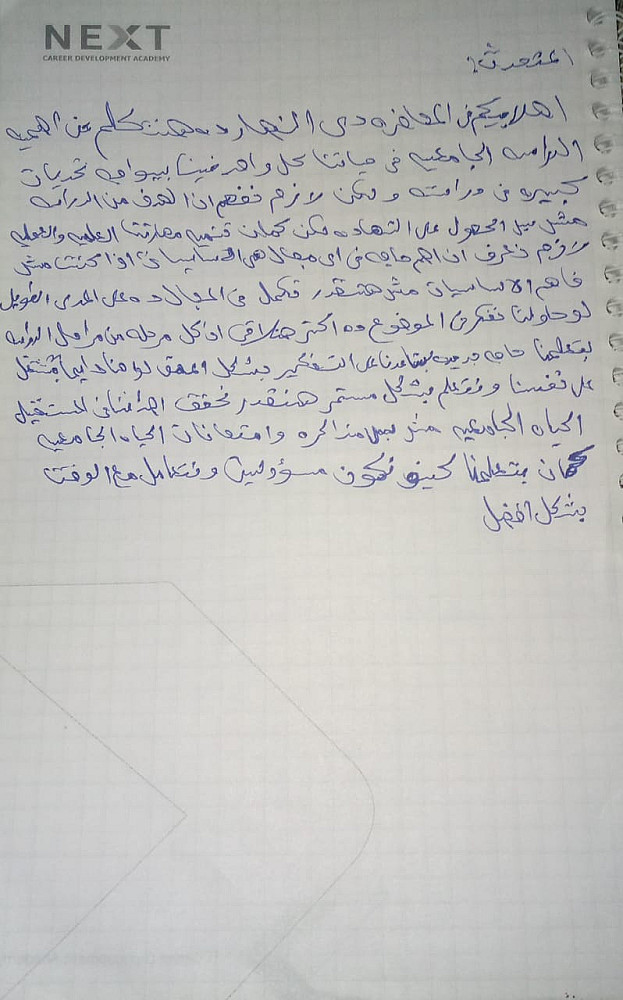 NEXT
CAREER DEVELOPMENT ACADEMY
المتحدث:
اهلا بيكم فى المحاضره دى النهارده هنتكلم عن اهميه
الدراسه الجامعيه فى حياتنا كل واحد فينا بيواجه تحديات
كبيره فى دراسته ولكن لازم نفهم ان الهدف من الدراسه
مش بس الحصول على الشهاده لكن كمان تنميه مهاراتنا العلميه والعمليه
لازم نعرف ان اهم حاجه فى اى مجال هى الاساسيات اذا كنت مش
فاهم الاساسيات مش هتقدر تكمل فى المجال ده على المدى الطويل
لو حاولنا نفكر فى الموضوع ده اكتر هنلاقى ان كل مرحله من مراحل الدراسه
بتعلمنا حاجه جديده بتساعدنا على التفكير بشكل اعمق لو احنا دايما بنشتغل
على نفسنا ونتعلم بشكل مستمر هنقدر نحقق اهدافنا فى المستقبل
الحياه الجامعيه مش بس مذاكره وامتحانات الحياه الجامعيه
كمان بتعلمنا كيف نكون مسؤولين ونتعامل مع الوقت
بشكل افضل